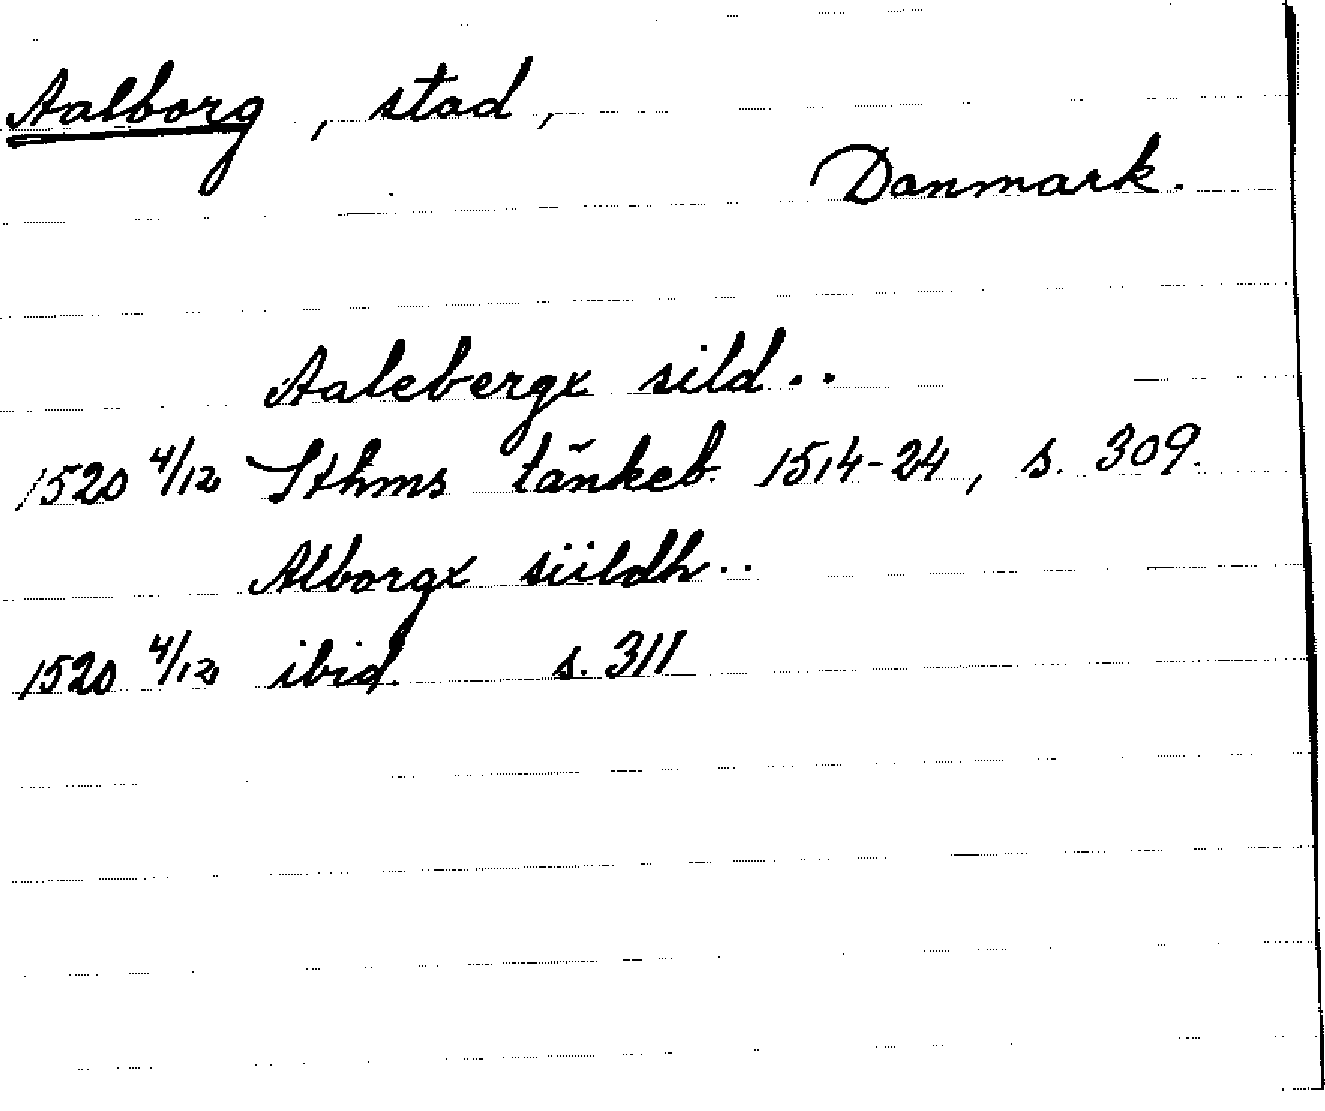 Aalborg, stad,
Danmark.
Aalebergx sild..
1520 4/12 Sthms tänkeb. 1514-24, s. 309.
Alborgx siildh..
1520 4/12 ibid. s. 311